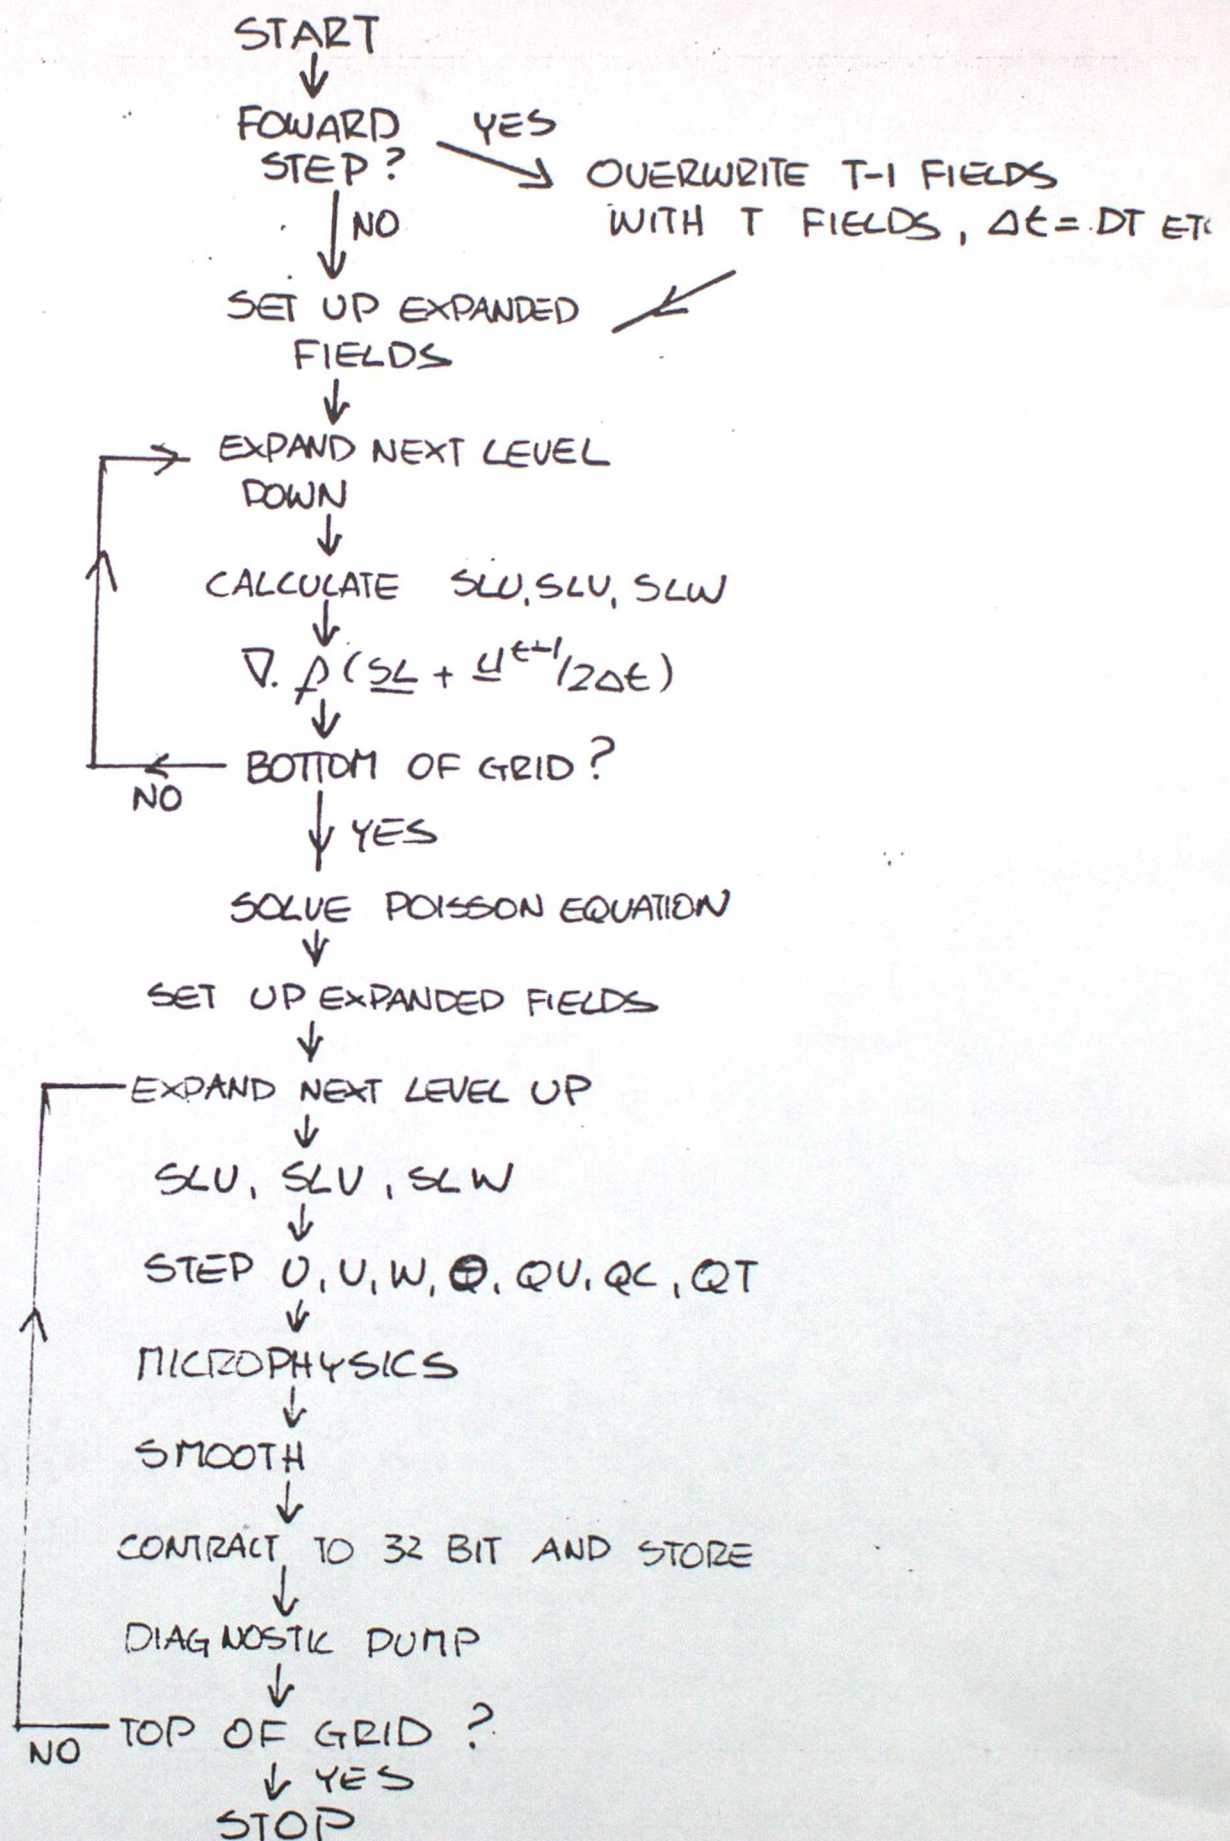 START
FOWARD YES
STEP? OVERWRITE T-1 FIELDS
NO WITH T FIELDS, Δt = DT ETC
SET UP EXPANDED
FIELDS
EXPAND NEXT LEVEL
DOWN
CALCULATE SLU, SLV, SLW
∇. ρ (SL + u^t-1/2Δt)
BOTTOM OF GRID?
NO
YES
SOLVE POISSON EQUATION
SET UP EXPANDED FIELDS
EXPAND NEXT LEVEL UP
SLU, SLV, SLW
STEP U, V, W, Θ, QV, QC, QT
MICROPHYSICS
SMOOTH
CONTRACT TO 32 BIT AND STORE
DIAGNOSTIC DUMP
TOP OF GRID ?
NO
YES
STOP